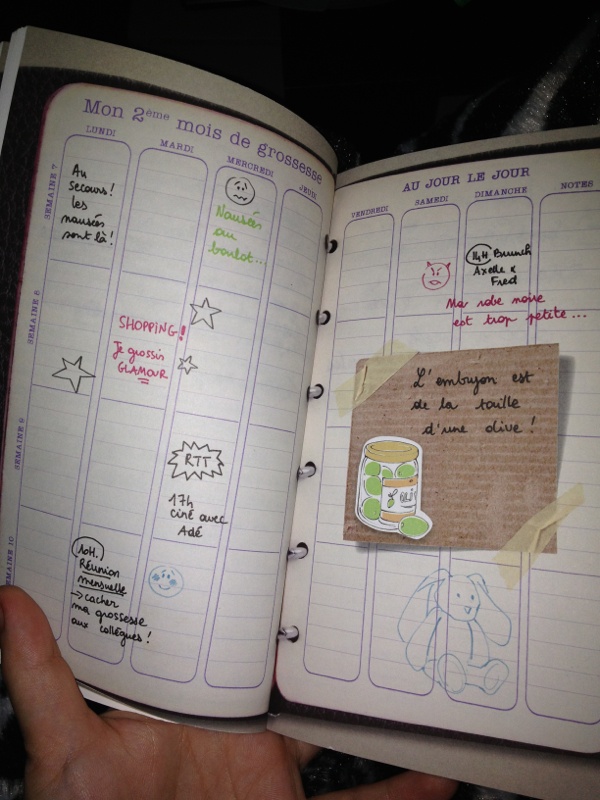 Mon 2ème mois de grossesse
LUNDI
MARDI
MERCREDI
JEUDI
SEMAINE 7
Au
secours!
les
nausées
sont là!
Nausées
au
boulot...
SEMAINE 8
SHOPPING!
Je grossis
GLAMOUR
SEMAINE 9
RTT
17h
ciné avec
Adé
SEMAINE 10
10H.
Réunion
mensuelle
→ cacher
ma grossesse
aux collègues!
AU JOUR LE JOUR
VENDREDI
SAMEDI
DIMANCHE
NOTES
11H Brunch
Axelle &
Fred
Ma robe noire
est trop petite...
L'embryon est
de la taille
d'une olive!